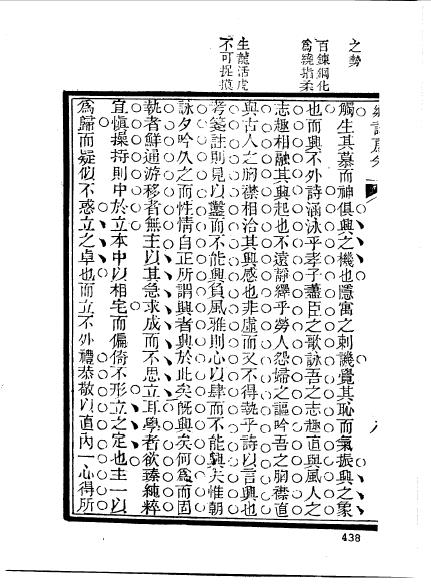 之勢
百鍊鋼化
為繞指柔
生龍活虎
不可捉摸
觸生其慕而神俱興之機也隱寓之刺譏覺其恥而氣振興之象
也而興不外詩涵泳乎孝子藎臣之歌詠吾之志趣直與風人之
志趣相融其興起也不遠靜繹乎勞人怨婦之謳吟吾之胸襟直
與古人之胸襟相洽其興感也非虛而又不得執乎詩以言興也
考箋註則見以鑿而不能興負風雅則心以肆而不能興夫惟朝
詠夕吟久之而性情自正所謂興者興於此矣旣興矣何為而固
執者鮮通游移者無主以其急求成而不思立耳學者欲臻純粹
宜愼操持則中於立本中以相宅而偏倚不形立之定也主一以
為歸而疑似不惑立之卓也而立不外禮恭敬以直內一心得所
438